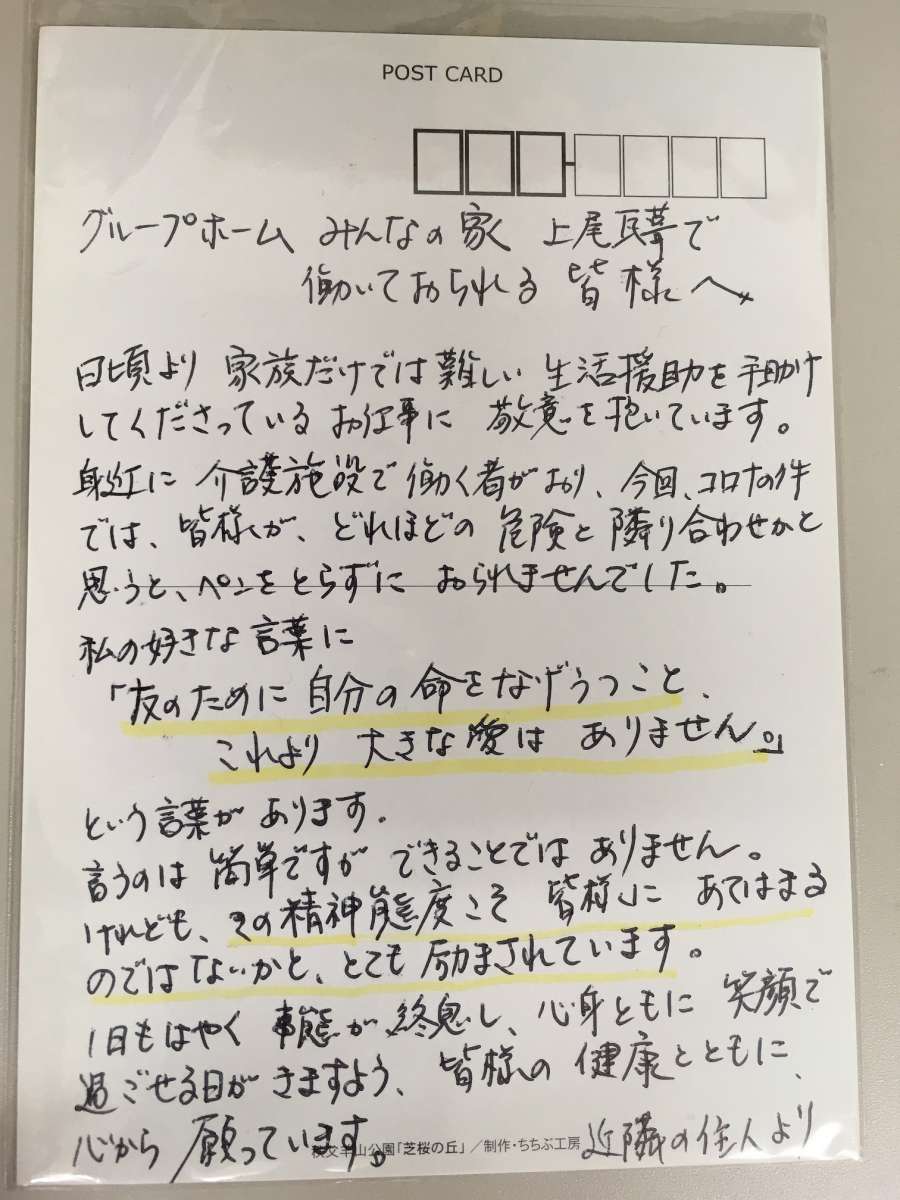 POST CARD
グループホーム みんなの家 上尾で
働いておられる 皆様へ
日頃より 家族だけでは難しい 生活援助を手助け
してくださっているお仕事に 敬意を抱いています。
身近に 介護施設で働く者がおり、今回、コロナの件
では、皆様が、どれほどの 危険と隣り合わせかと
思うと、ペンをとらずに おられませんでした。
私の好きな言葉に
「友のために自分の命をなげうつこと、
これより 大きな愛は ありません。」
という言葉があります。
言うのは簡単ですが できることではありません。
けれども、その精神態度こそ 皆様に あてはまる
のではないかと、とても励まされています。
1日もはやく 事態が終息し、心身ともに 笑顔で
過ごせる日がきますよう、皆様の健康とともに、
心から 願っています。
山公園「芝桜の丘」／制作・ちちぶ工房
近隣の住人より